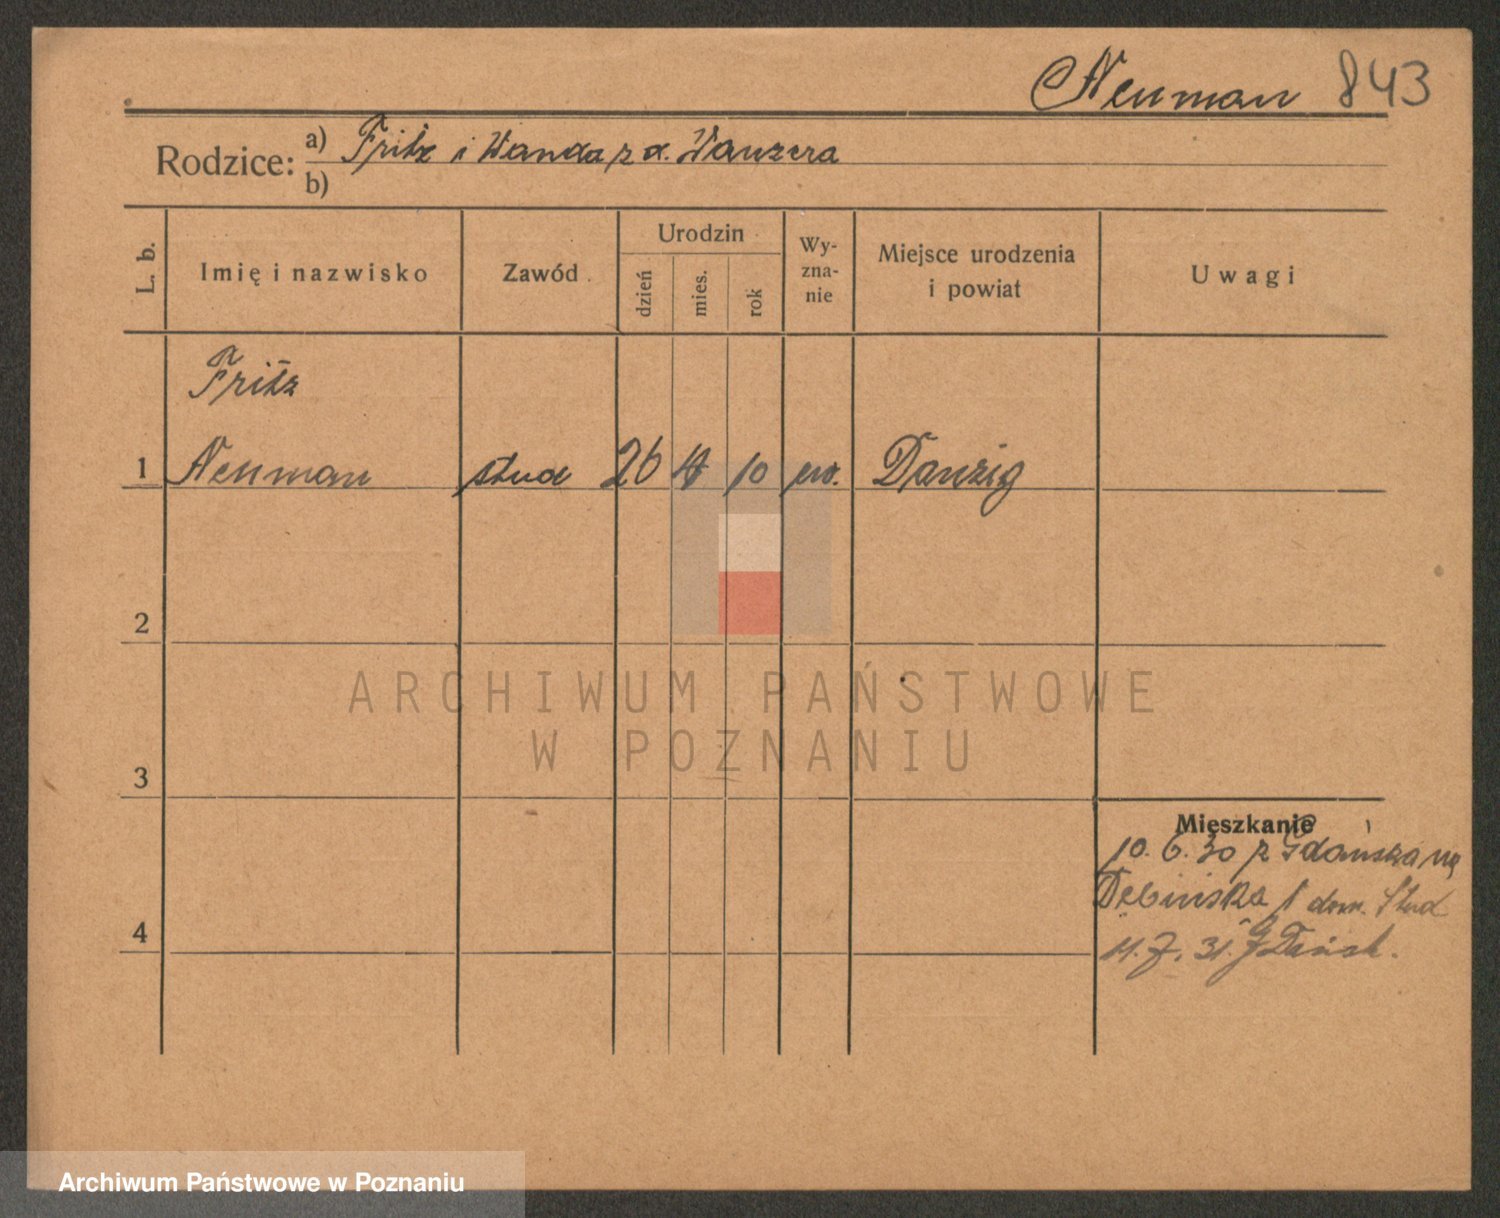 Neuman 843
Rodzice: a) Fritz i Wanda z d. Wanzera
b)
L. b. Imię i nazwisko Zawód Urodzin dzień mies. rok Wyznanie Miejsce urodzenia i powiat Uwagi
Fritz
1 Neuman stud 26 4 10 ew. Danzig
2
ARCHIWUM PAŃSTWOWE
W POZNANIU
3
Mieszkanie
10. 6. 30 z Gdańska na
Dębińska 1 dom. Stud
4 11. 7. 31. Gdańsk.
Archiwum Państwowe w Poznaniu